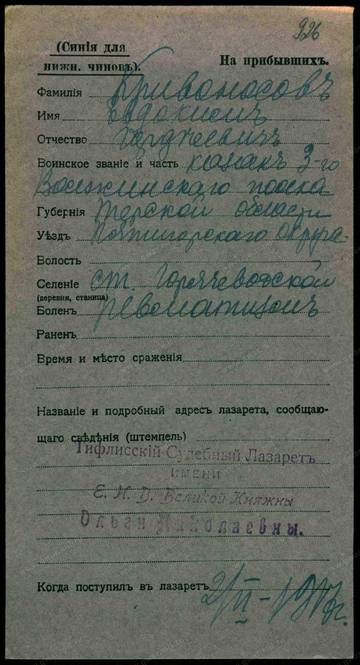 926
(Синія для
нижн. чиновъ).
На прибывшихъ.
Фамилія Кривоносовъ
Имя Евдокимъ
Отчество
Воинское званіе и часть казакъ 3-го
Волжинскаго полка
Губернія Терской области
Уѣздъ Пятигорскаго округа
Волость
Селеніе ст. Горячеводской
(деревня, станица)
Боленъ ревматизмомъ
Раненъ
Время и мѣсто сраженія
Названіе и подробный адресъ лазарета, сообщаю-
щаго свѣдѣнія (штемпель)
Тифлисскій Судебный Лазаретъ
имени
Е. И. В. Великой Княжны
Ольги Николаевны.
Когда поступилъ въ лазаретъ